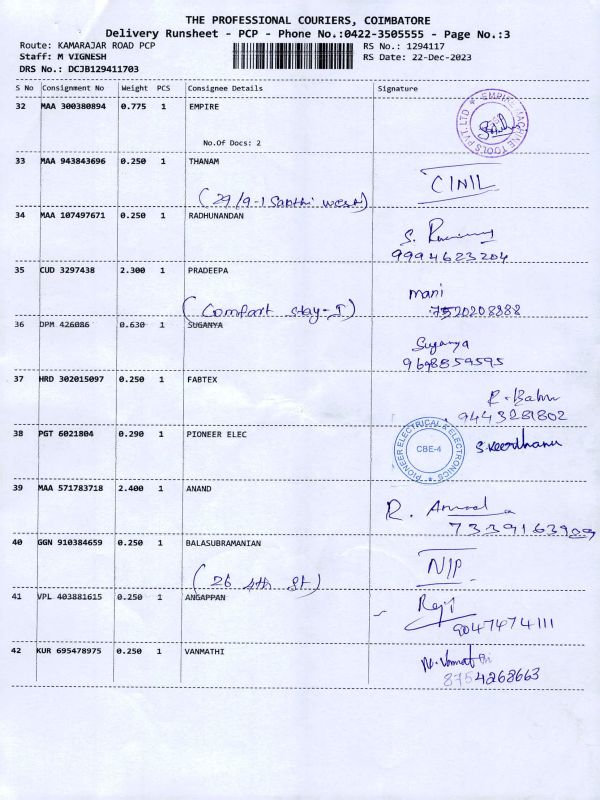 THE PROFESSIONAL COURIERS, COIMBATORE
Delivery Runsheet - PCP - Phone No.:0422-3505555 - Page No.:3
Route: KAMARAJAR ROAD PCP
RS No.: 1294117
Staff: M VIGNESH
RS Date: 22-Dec-2023
DRS No.: DCJB129411703
S No Consignment No Weight PCS Consignee Details Signature
32 MAA 300380894 0.775 1 EMPIRE
EMPIRE MACHINE TOOLS PVT. LTD
No.Of Docs: 2
33 MAA 943843696 0.250 1 THANAM
CINIL
(27/9-1 Santhi west)
34 MAA 107497671 0.250 1 RADHUNANDAN
9994623204
35 CUD 3297438 2.300 1 PRADEEPA
mani
7520208888
(Comfort stay-I)
36 DPM 426086 0.630 1 SUGANYA
Suganya
9698859595
37 HRD 302015097 0.250 1 FABTEX
R. Babu
9443281802
38 PGT 6021804 0.290 1 PIONEER ELEC
PIONEER ELECTRICAL & ELECTRONICS
CBE-4
S.Keerthana
39 MAA 571783718 2.400 1 ANAND
R. Anand
7339163909
40 GGN 910384659 0.250 1 BALASUBRAMANIAN
N/P
(26 4th st)
41 VPL 403881615 0.250 1 ANGAPPAN
Reji
9047474111
42 KUR 695478975 0.250 1 VANMATHI
8754268663